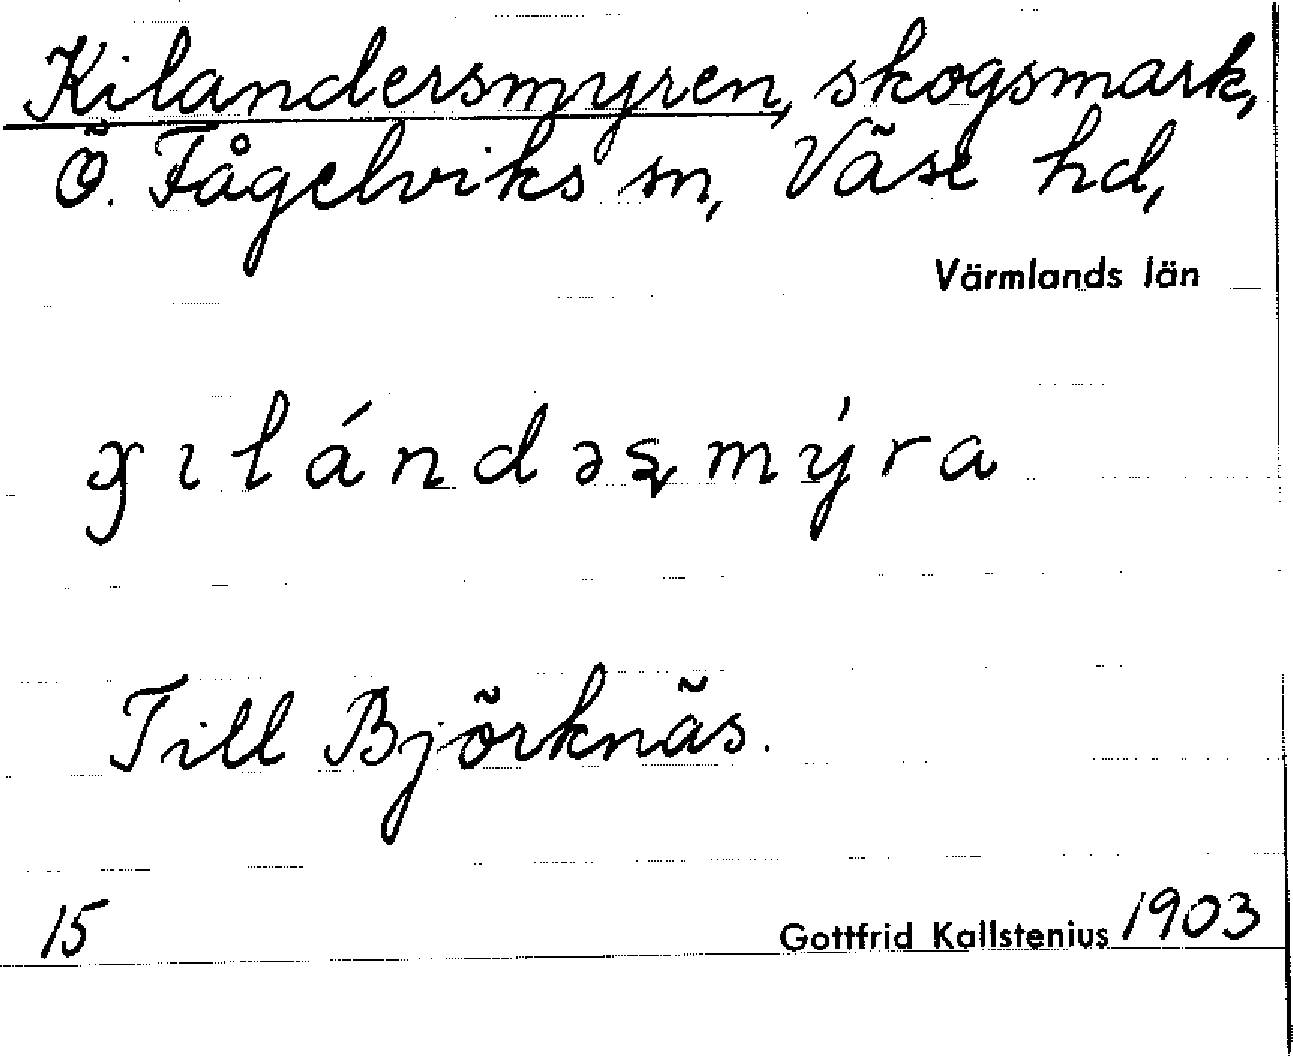 Kilandersmyren, skogsmark,
Ö. Fågelviks sn, Väse hd,
Värmlands län
gılándəʂmýra
Till Björknäs.
15 Gottfrid Kallstenius 1903